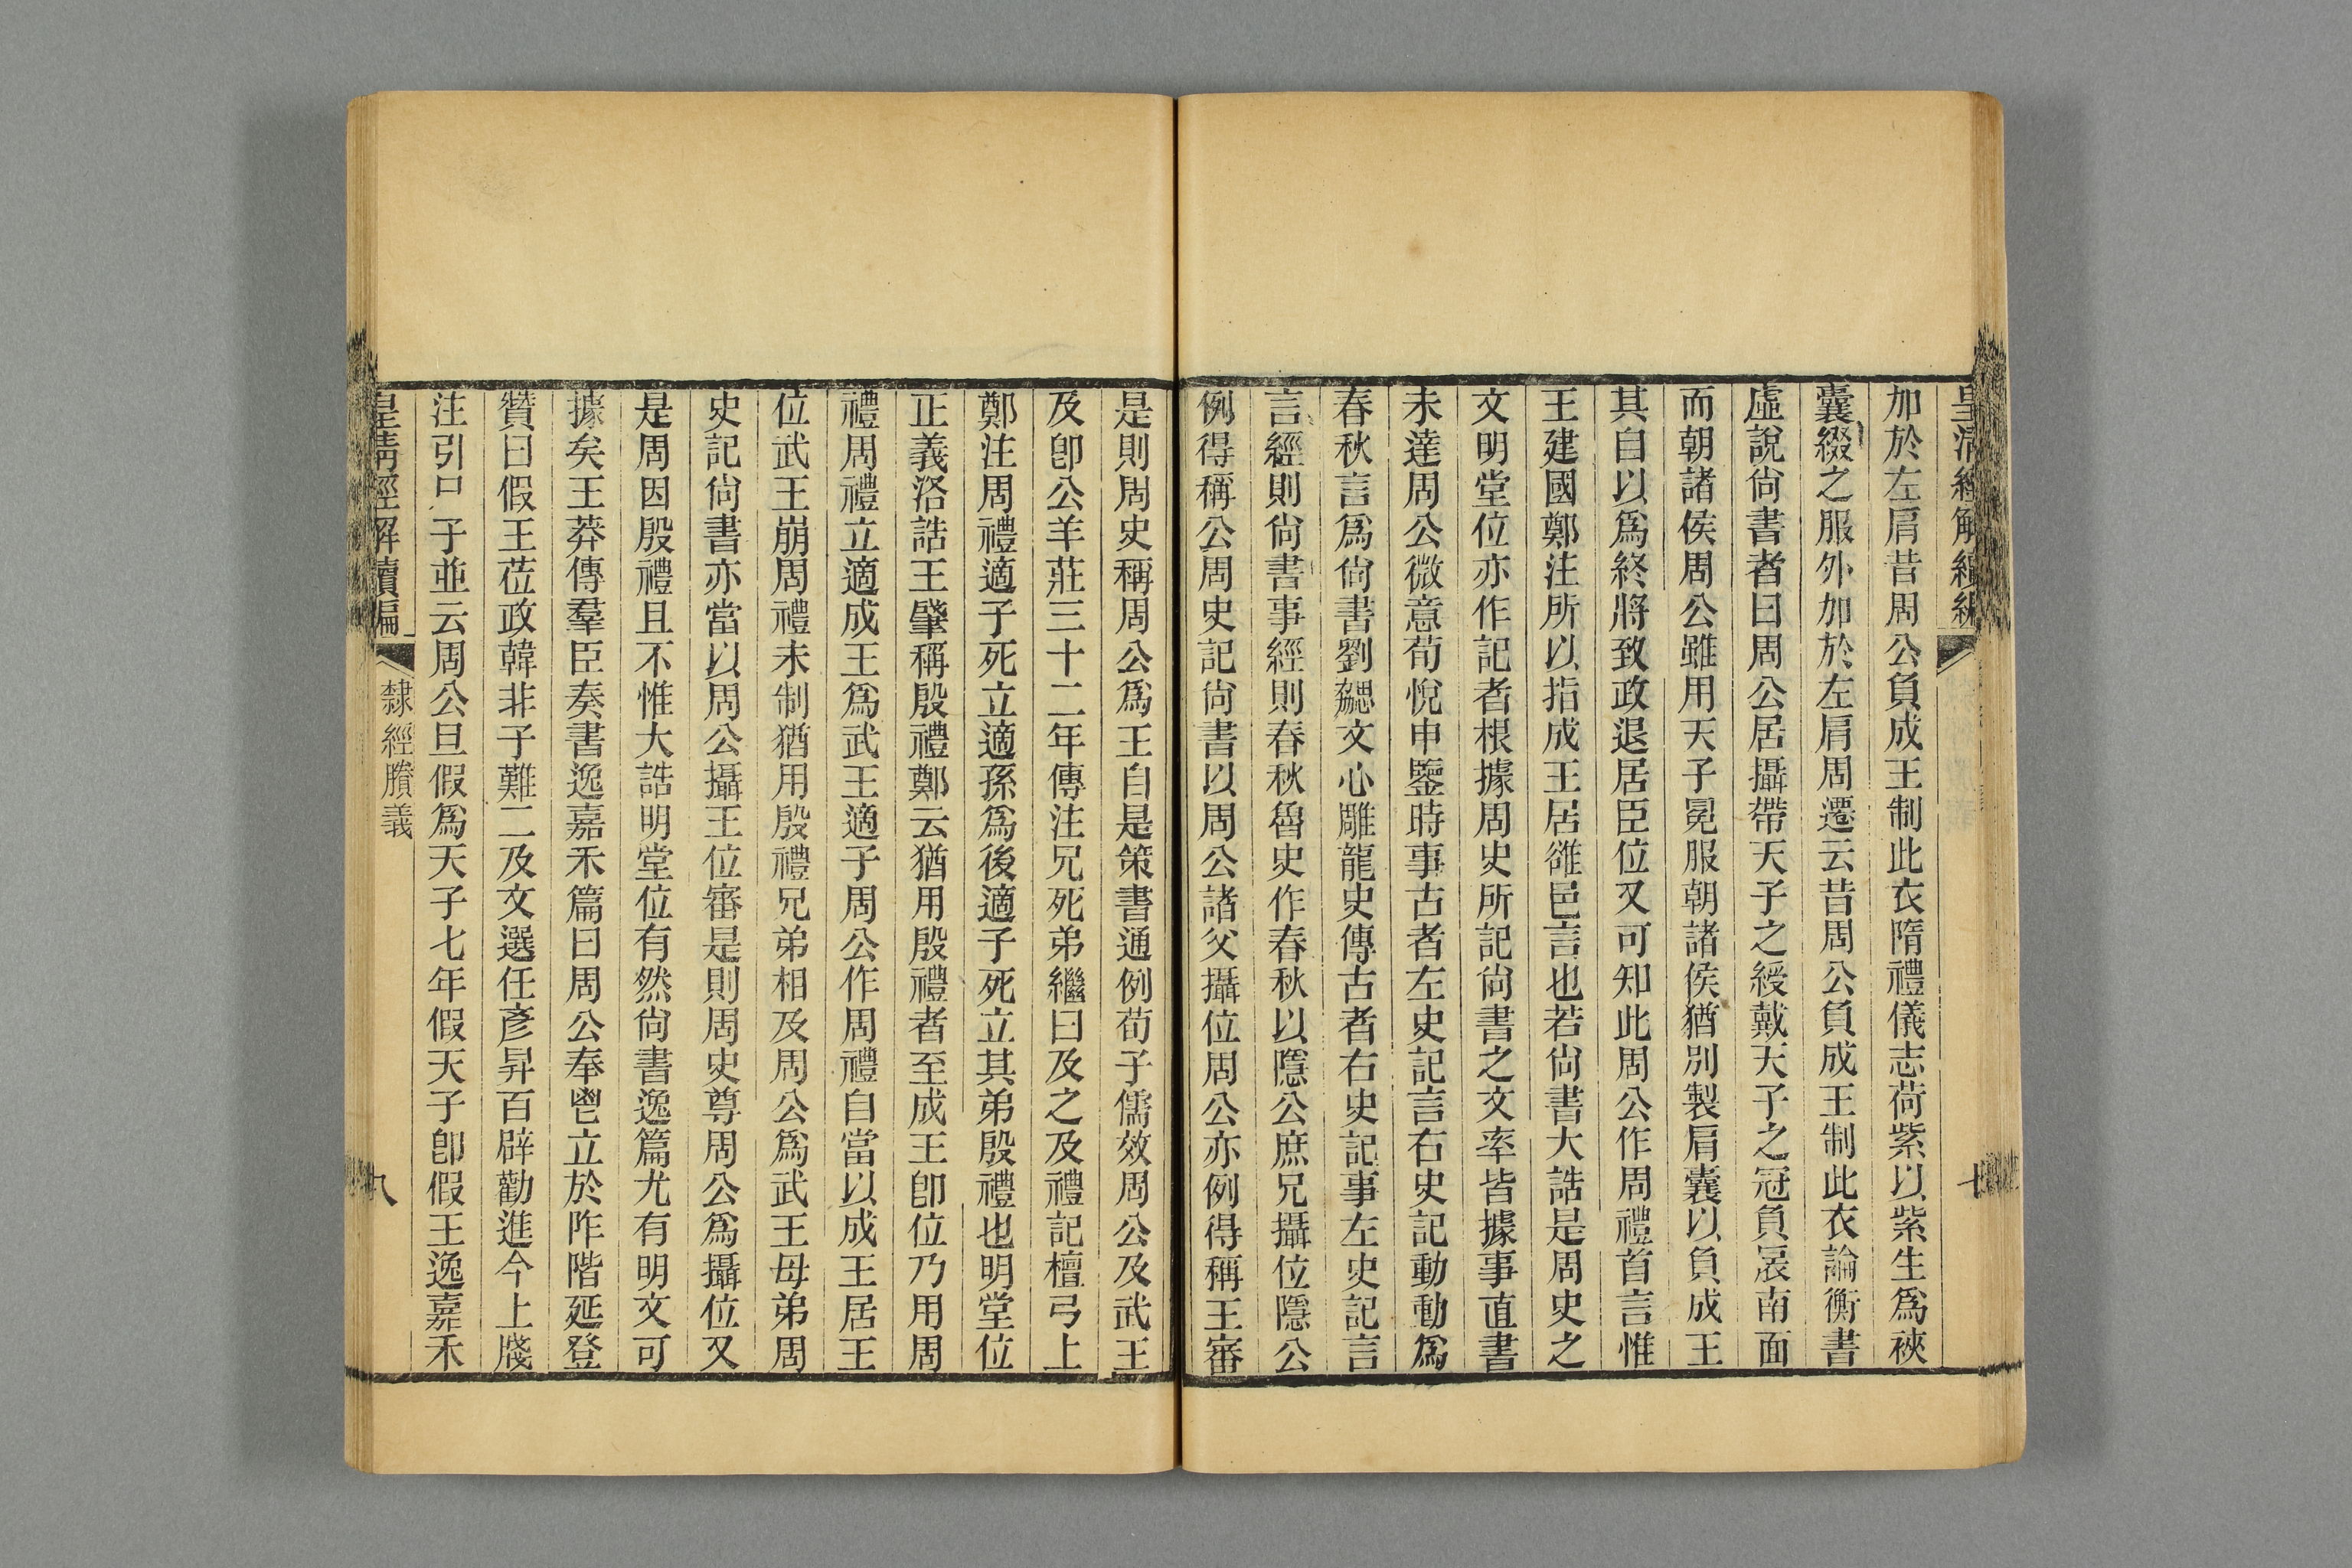 皇清經解續編
加於左肩昔周公負成王制此衣隋禮儀志荷紫以紫生爲裌
囊綴之服外加於左肩周遷云昔周公負成王制此衣論衡書
虛說尙書者曰周公居攝帶天子之綬戴天子之冠負扆南面
而朝諸侯周公雖用天子冕服朝諸侯猶別製肩囊以負成王
其自以爲終將致政退居臣位又可知此周公作周禮首言惟
王建國鄭注所以指成王居雒邑言也若尙書大誥是周史之
文明堂位亦作記者根據周史所記尙書之文率皆據事直書
未達周公微意荀悅申鑒時事古者左史記言右史記動動爲
春秋言爲尙書劉勰文心雕龍史傳古者右史記事左史記言
言經則尙書事經則春秋魯史作春秋以隱公庶兄攝位隱公
例得稱公周史記尙書以周公諸父攝位周公亦例得稱王審
是則周史稱周公爲王自是策書通例荀子儒效周公及武王
及卽公羊莊三十二年傳注兄死弟繼曰及之及禮記檀弓上
鄭注周禮適子死立適孫爲後適子死立其弟殷禮也明堂位
正義洛誥王肇稱殷禮鄭云猶用殷禮者至成王卽位乃用周
禮周禮立適成王爲武王適子周公作周禮自當以成王居王
位武王崩周禮未制猶用殷禮兄弟相及周公爲武王母弟周
史記尙書亦當以周公攝王位審是則周史尊周公爲攝位又
是周因殷禮且不惟大誥明堂位有然尙書逸篇尤有明文可
據矣王莽傳羣臣奏書逸嘉禾篇曰周公奉鬯立於阼階延登
贊曰假王莅政韓非子難二及文選任彥昇百辟勸進今上牋
注引尸子並云周公旦假爲天子七年假天子卽假王逸嘉禾
皇淸經解續編
隸經賸義
八